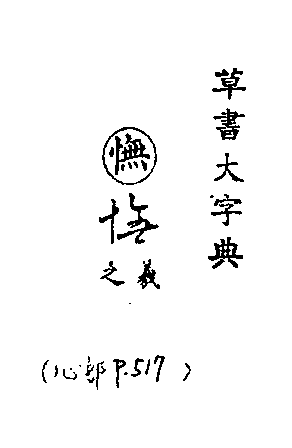 草書大字典
憮
憮
羲之
(心部 P.517)